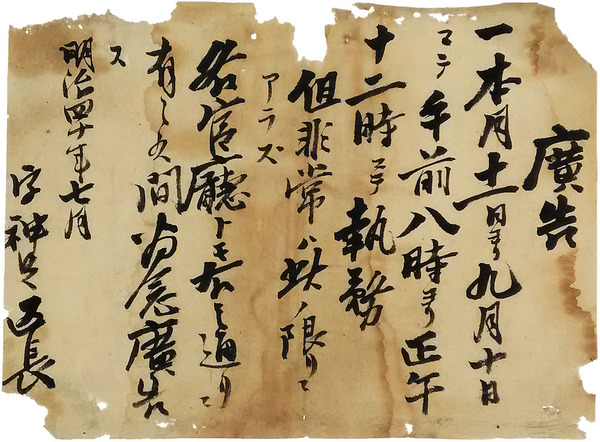 廣告
一本月十一日ヨリ九月十日
マテ午前八時ヨリ正午
十二時マテ執務
但非常ハ此ノ限リニ
アラズ
各官廳トモ右之通リニ
有之候間為念廣告
ス
明治四十年七月
字神 区長